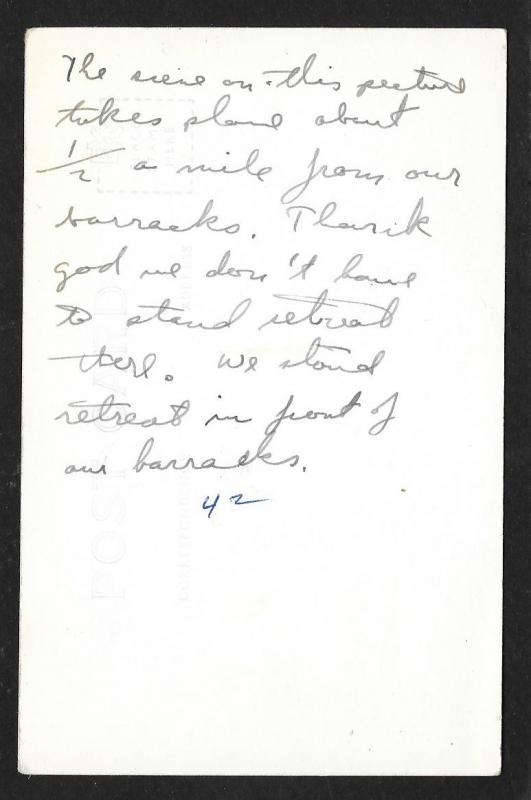 The scene on this picture
takes place about
1/2 a mile from our
barracks. Thank
god we don't have
to stand retreat
there. We stand
retreat in front of
our barracks.
42
POST CARD
PLACE
STAMP
HERE
CORRESPONDENCE
ADDRESS